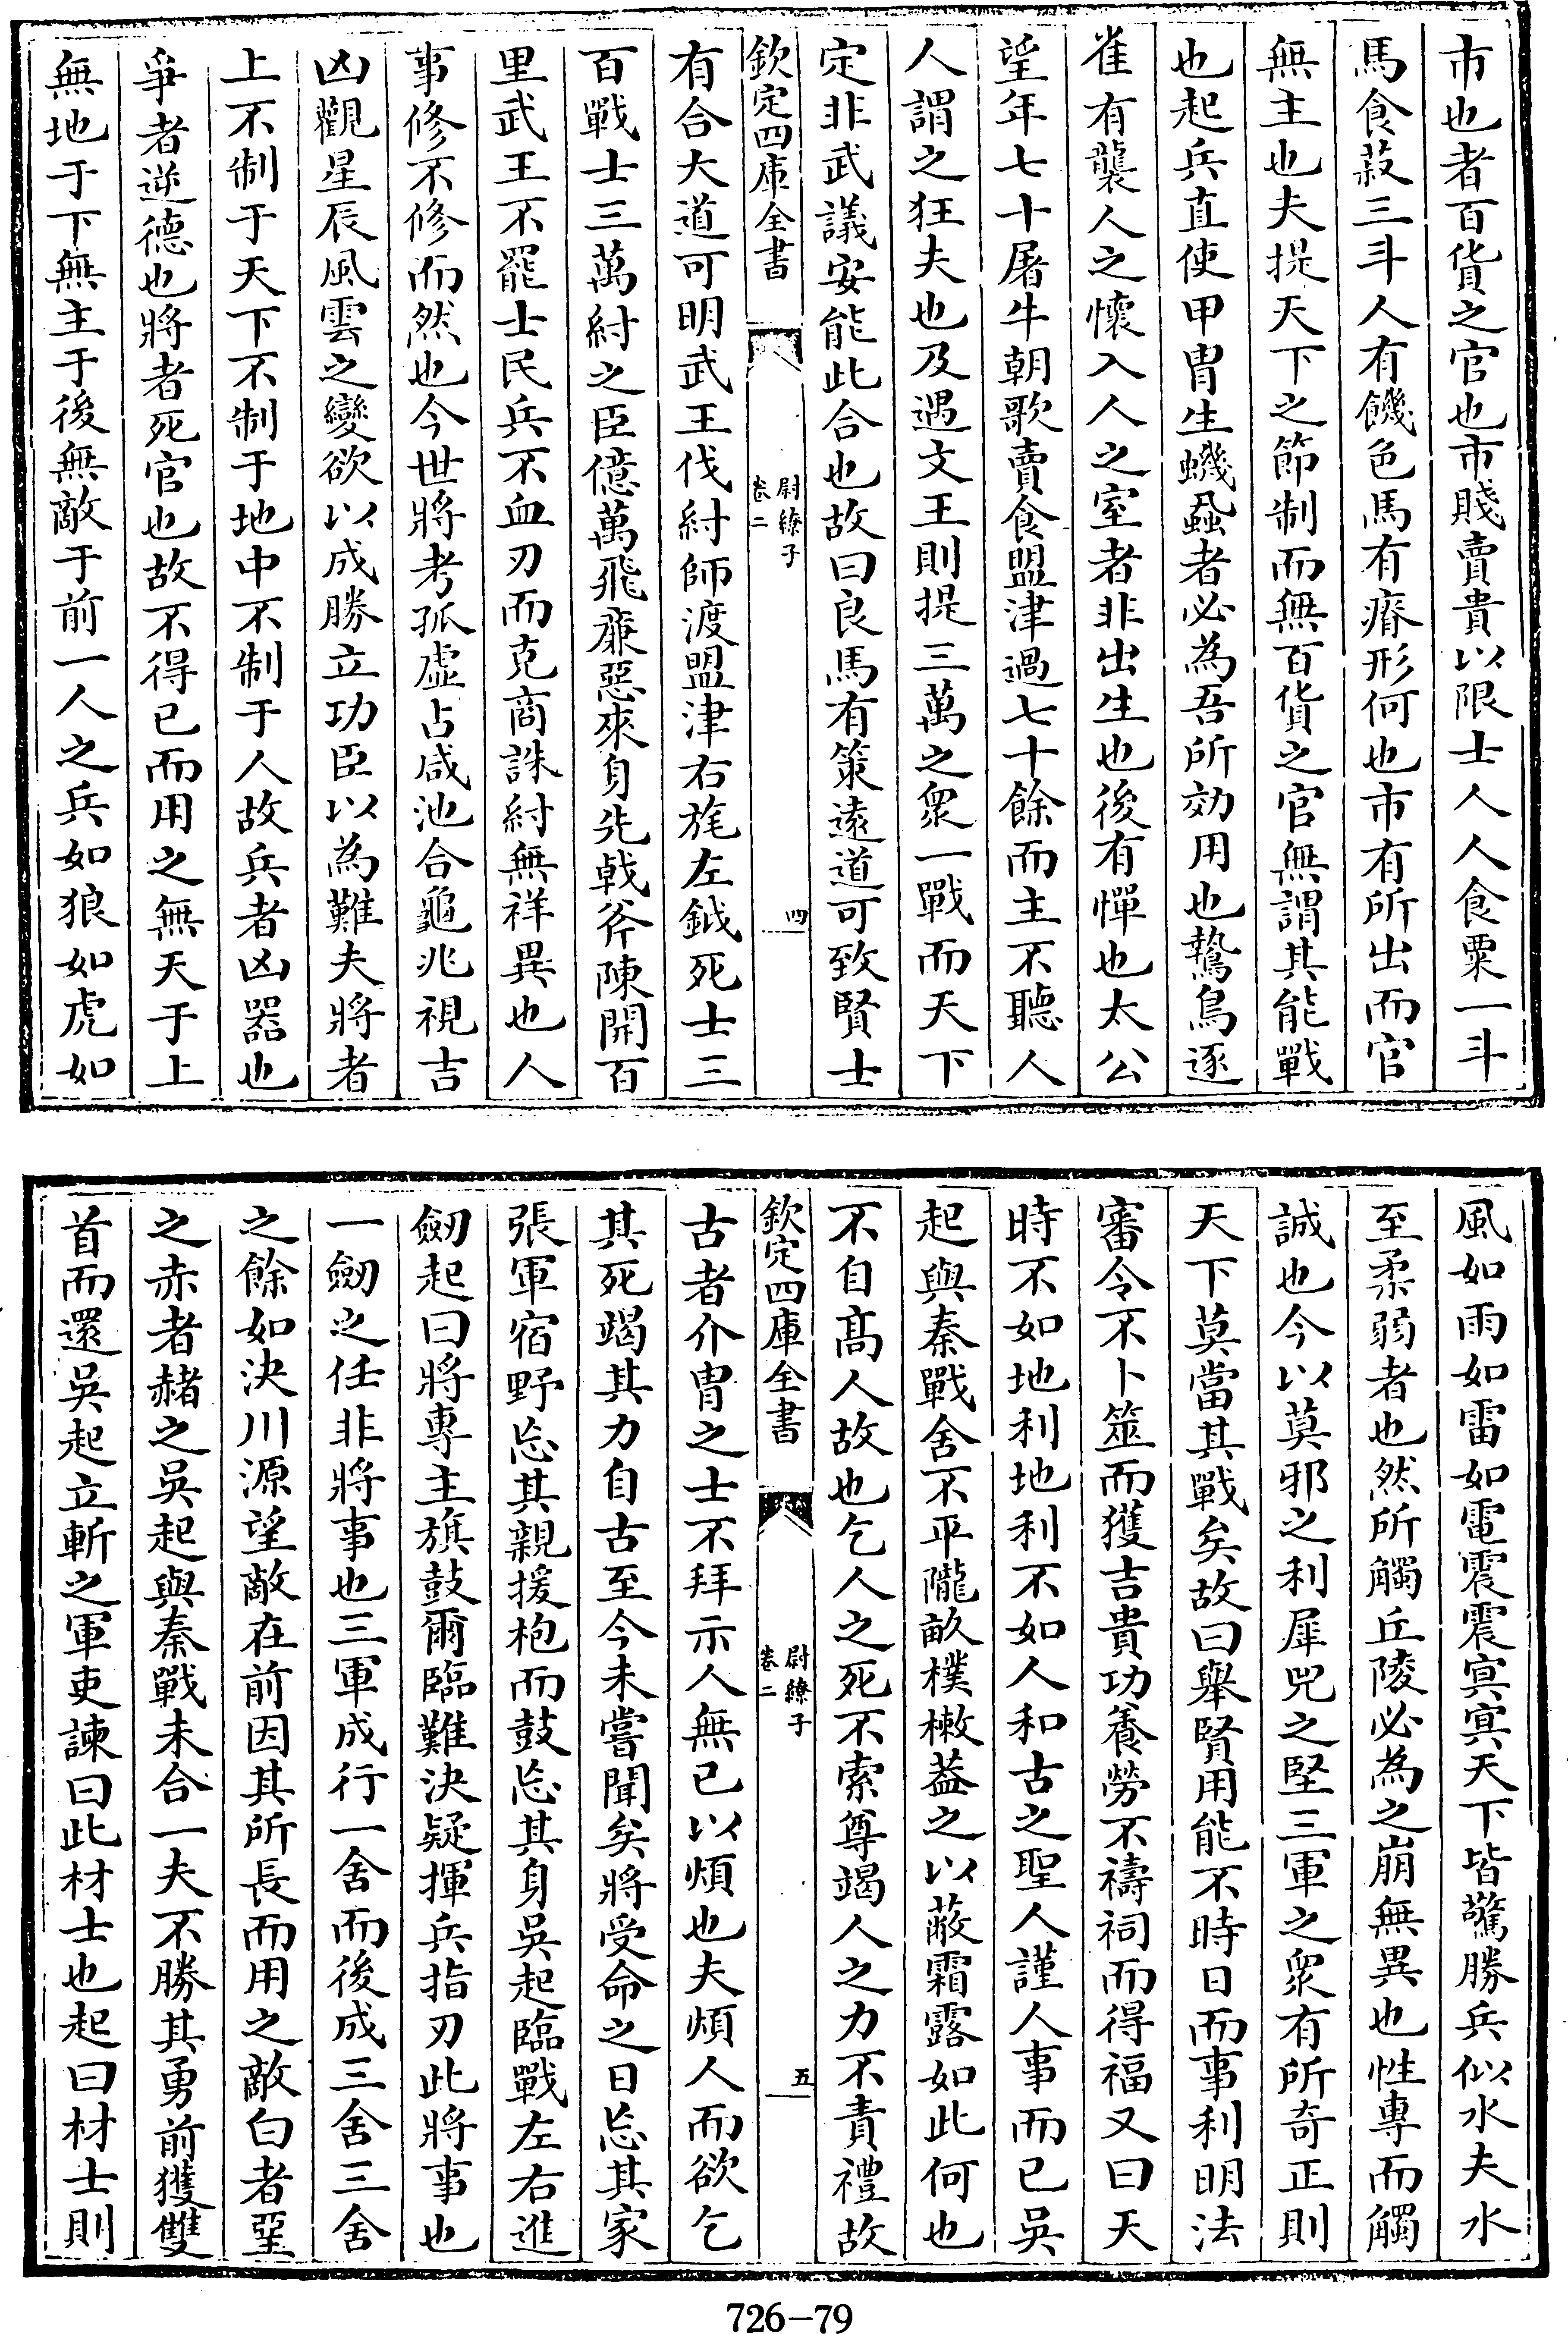 市也者百貨之官也市賤賣貴以限士人人食粟一斗
馬食菽三斗人有饑色馬有瘠形何也市有所出而官
無主也夫提天下之節制而無百貨之官無謂其能戰
也起兵直使甲胄生蟣蝨者必為吾所効用也鷙鳥逐
雀有襲人之懷入人之室者非出生也後有憚也太公
望年七十屠牛朝歌賣食盟津過七十餘而主不聽人
人謂之狂夫也及遇文王則提三萬之衆一戰而天下
定非武議安能此合也故曰良馬有策遠道可致賢士
欽定四庫全書
尉繚子
卷二
四
有合大道可明武王伐紂師渡盟津右旄左鉞死士三
百戰士三萬紂之臣億萬飛亷惡來身先戟斧陳開百
里武王不罷士民兵不血刃而克商誅紂無祥異也人
事修不修而然也今世將考孤虛占咸池合龜兆視吉
凶觀星辰風雲之變欲以成勝立功臣以為難夫將者
上不制于天下不制于地中不制于人故兵者凶器也
爭者逆德也將者死官也故不得已而用之無天于上
無地于下無主于後無敵于前一人之兵如狼如虎如
風如雨如雷如電震震冥冥天下皆驚勝兵似水夫水
至柔弱者也然所觸丘陵必為之崩無異也性專而觸
誠也今以莫邪之利犀兕之堅三軍之衆有所奇正則
天下莫當其戰矣故曰舉賢用能不時日而事利明法
審令不卜筮而獲吉貴功養勞不禱祠而得福又曰天
時不如地利地利不如人和古之聖人謹人事而已吳
起與秦戰舍不平隴畝樸樕蓋之以蔽霜露如此何也
不自高人故也乞人之死不索尊竭人之力不責禮故
欽定四庫全書
尉繚子
卷二
五
古者介胄之士不拜示人無已以煩也夫煩人而欲乞
其死竭其力自古至今未嘗聞矣將受命之日忘其家
張軍宿野忘其親援枹而鼓忘其身吳起臨戰左右進
劒起曰將專主旗鼓爾臨難決疑揮兵指刃此將事也
一劒之任非將事也三軍成行一舍而後成三舍三舍
之餘如決川源望敵在前因其所長而用之敵白者堊
之赤者赭之吳起與秦戰未合一夫不勝其勇前獲雙
首而還吳起立斬之軍吏諫曰此材士也起曰材士則
726-79